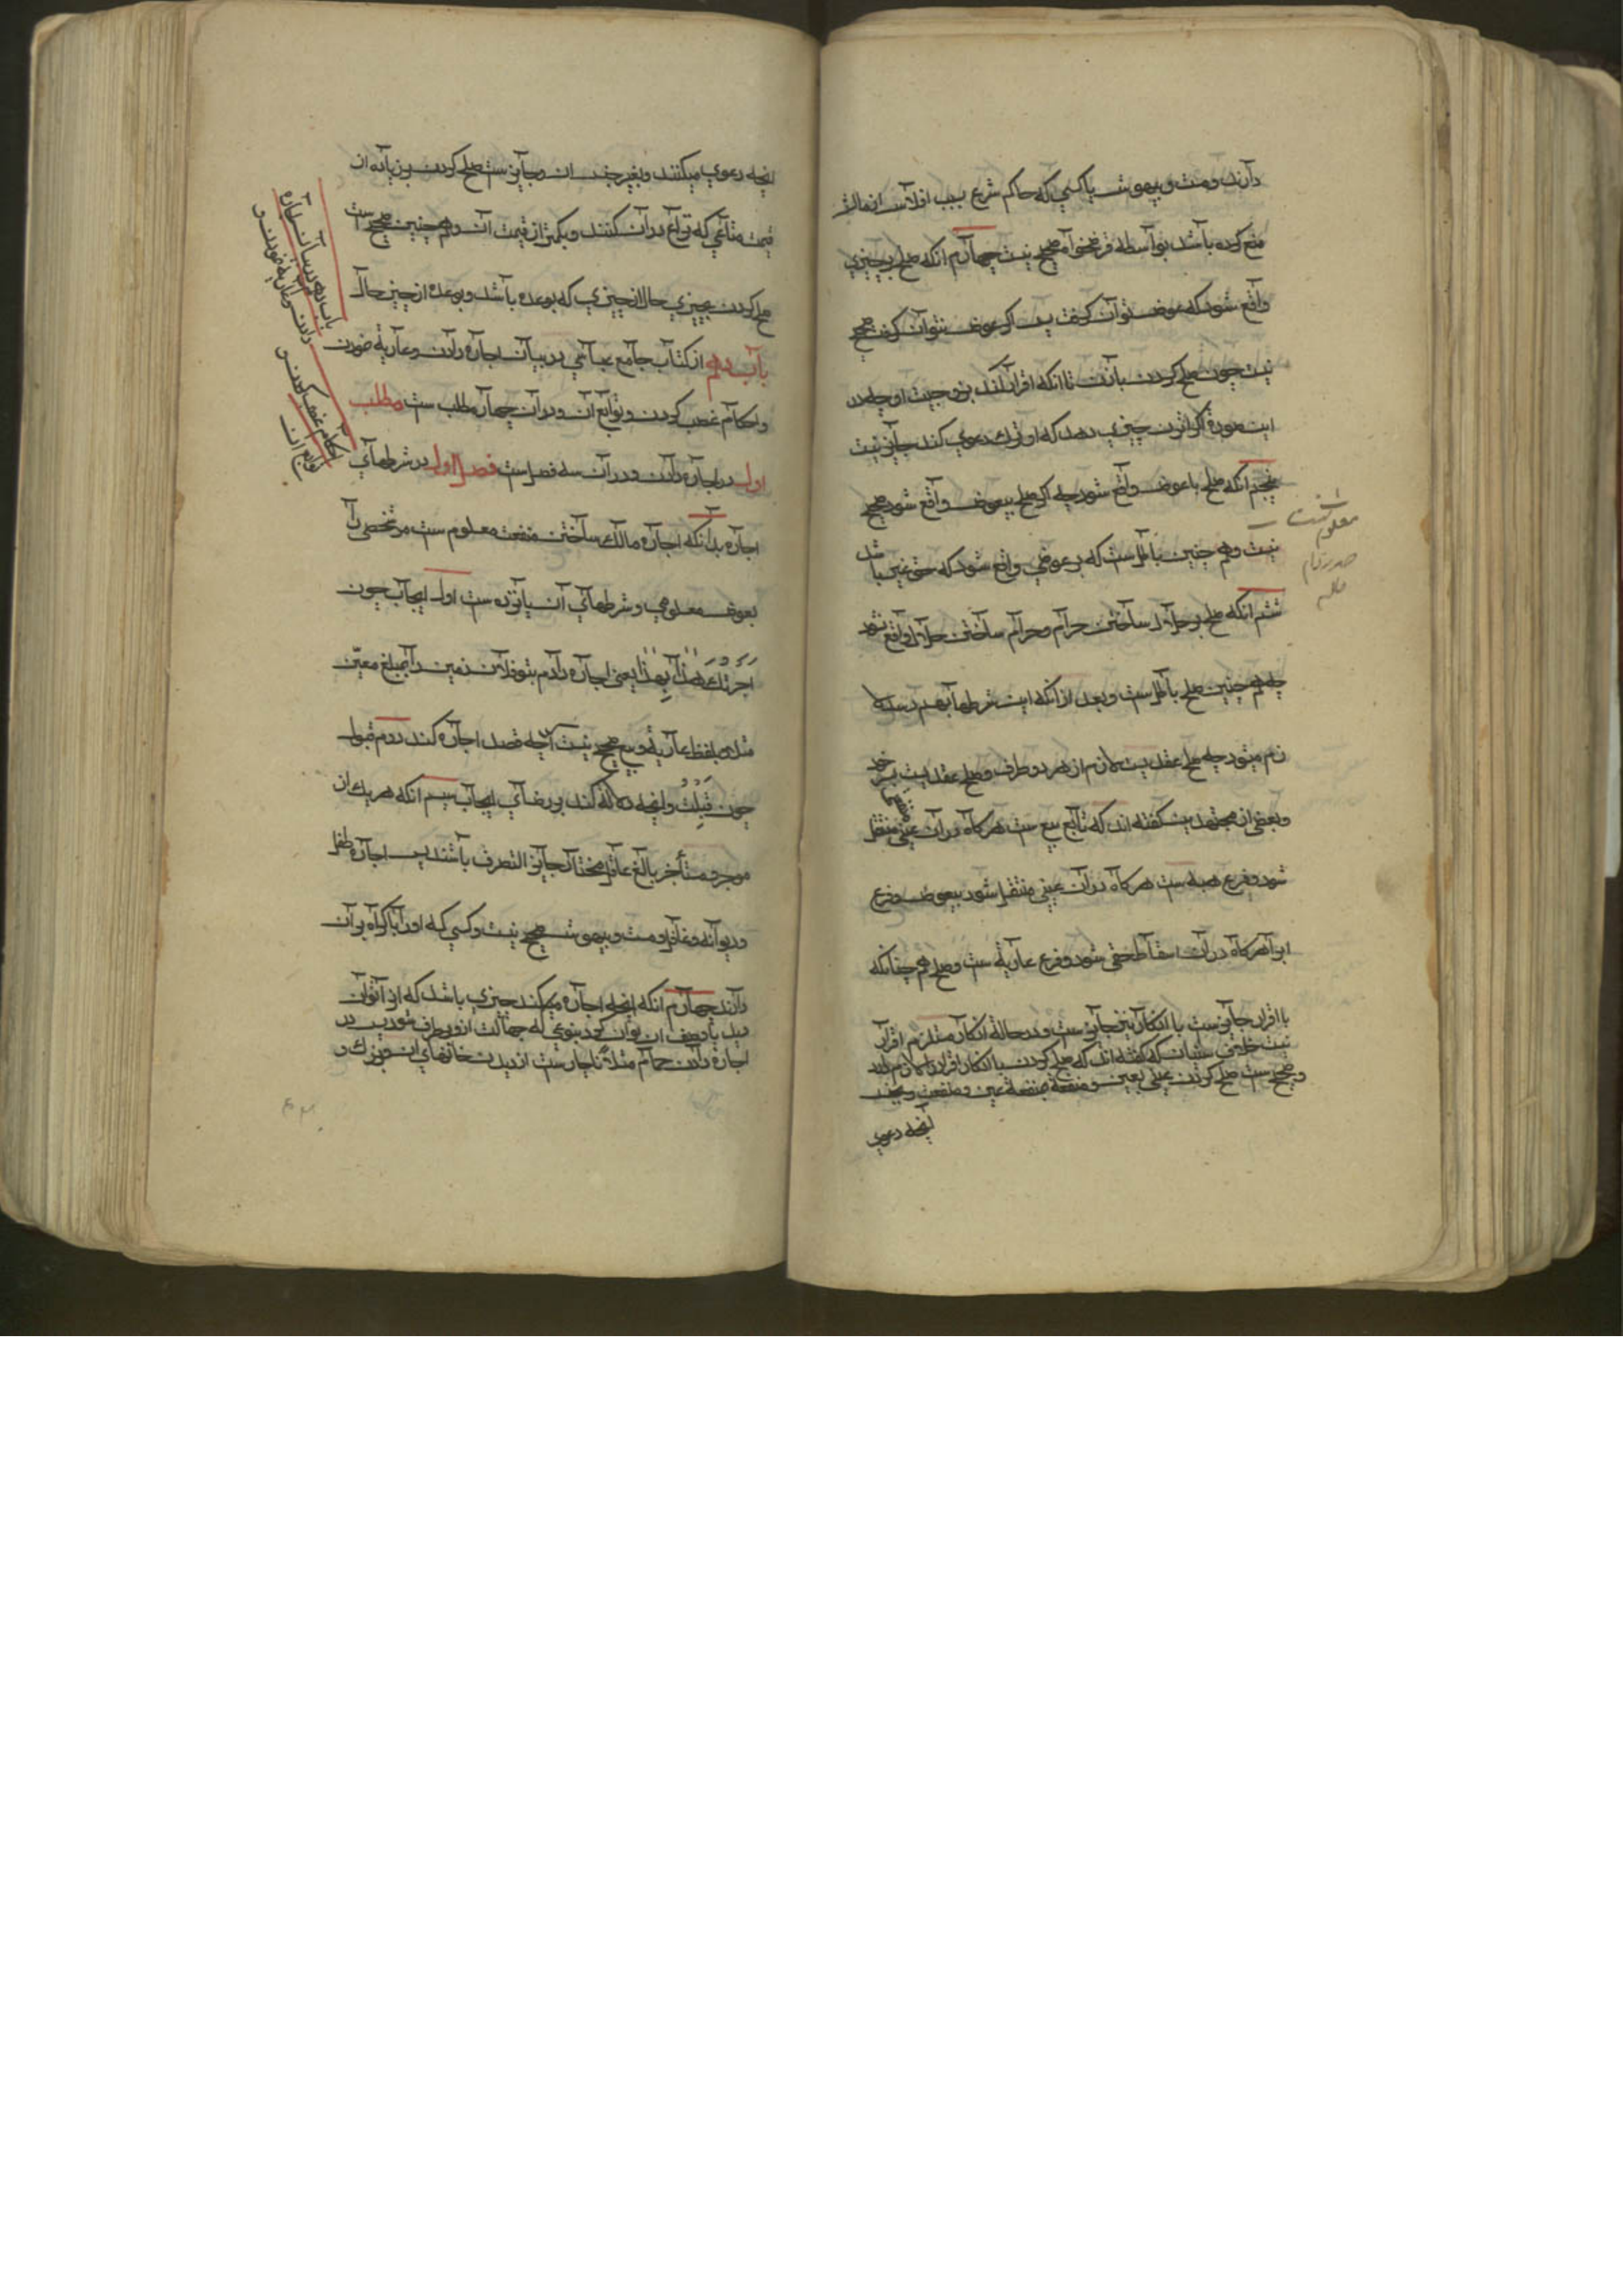 دارند و مست و بیهوش یا کسی که حاکم شرع بسبب افلاس از مالش
منع کرده باشد بواسطه قرضخواه صحیح نیست چهارم انکه صلح بر چیزی
واقع شود که عوض توان کرفت پس اکر عوض نتوان کرفت صحیح
نیست چون صلح کردن با زن تا انکه اقرار کند بزوجیت او چه در
این صورة اکر انزن چیزی دهد که او ترک دعوی کند جایز نیست
پنجم انکه صلح با عوض واقع شود چه اکر صلح بیعوض واقع شود صحیح
نیست و هم چنین باطل است که بر عوضی واقع شود که حق غیر باشد
ششم انکه صلح بر حلال ساختن حرام و حرام ساختن حلال واقع نشود
چه هم چنین صلح باطل ست و بعد از انکه این شرطها بهم رسد لا
زم میشود چه صلح عقدیست لازم از هر دو طرف و صلح عقدیست بسر خود
و بعضی از مجتهدین کفته اند که تابع بیع ست هر کاه در ان عینی منتقل
شود و فرع هبه ست هر کاه در ان عینی منتقل شود بیعوض و فرع
ابرا هر کاه در ان اسقاط حقی شود و فرع عاریة ست و صلح هم چنانکه
با اقرار جایز ست با انکار نیز جایز ست و در حالة انکار مستلزم اقرار
نیست خلاف سنیان که کفته اند که صلح کردن با انکار اقرار را لازم دارد
و صحیح ست صلح کردن عین بعین و منفعة بمنفعة و عین و منفعت و بجنس
انچه دعوی
معلوم نیست
انچه دعوی میکنند و بغیر جنس ان و جایز ست صلح کردن بر زیاده از
قیمت متاعی که نزاع در ان کنند و بکمتر از قیمت ان و هم چنین صحیح ست
صلح کردن بچیزی حال از چیزی که بوعده باشد و بوعده از چیز حال
باب دهم از کتاب جامع عباسی در بیان اجاره دادن و عاریة نمودن
و احکام غصب کردن و توابع ان و در ان چهار مطلب ست مطلب
اول در اجاره دادن و در ان سه فصل ست فصل اول در شرطهای
اجاره بدانکه اجاره مالک ساختن منفعت معلوم ست مر شخصی را
بعوض معلومی و شرطهای ان یانزده ست اول ایجاب چون
اجرتک هذا بهذا یعنی اجاره دادم بتو فلان زمین را بمبلغ معین
مثلا و بلفظ عاریة و بیع صحیح نیست اکرچه قصد اجاره کند دوم قبول
چون قبلت و انچه دلالة کند بر رضای ایجاب سیم انکه هر یک از
موجر و مستأجر بالغ عاقل مختار جایز التصرف باشند پس اجاره طفل
و دیوانه و غافل و مست و بیهوش صحیح نیست و کسی که او را باکراه بران
دارند چهارم انکه انچه اجاره میکند چیزی باشد که او را توان
دید یا وصف ان توان کرد بنوعی که جهالت ازو برطرف شود پس در
اجاره دادن حمام مثلا ناچار ست از دیدن خانهای ان و بزرک و
باب دهم در بیان اجاره
دادن و عاریة نمودن و
احکام غصب کردن و
توابع ان